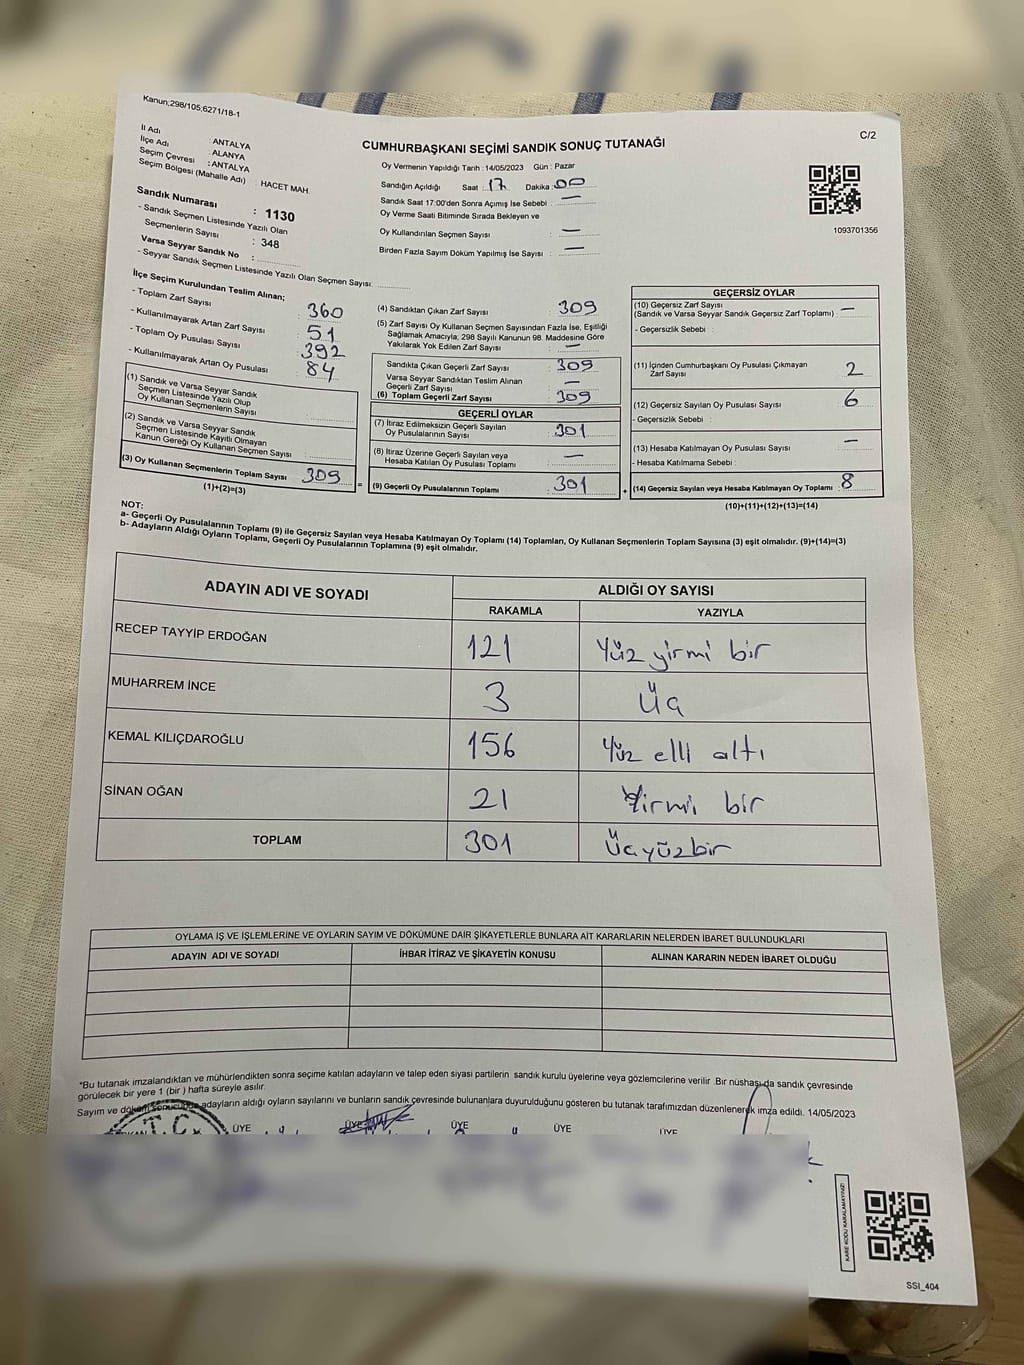 Kanun;298/105;6271/18-1
C/2
İl Adı : ANTALYA
İlçe Adı : ALANYA
Seçim Çevresi : ANTALYA
Seçim Bölgesi (Mahalle Adı) : HACET MAH.
Sandık Numarası : 1130
- Sandık Seçmen Listesinde Yazılı Olan
Seçmenlerin Sayısı : 348
Varsa Seyyar Sandık No :
- Seyyar Sandık Seçmen Listesinde Yazılı Olan Seçmen Sayısı:
CUMHURBAŞKANI SEÇİMİ SANDIK SONUÇ TUTANAĞI
Oy Vermenin Yapıldığı Tarih :14/05/2023 Gün : Pazar
Sandığın Açıldığı Saat : 17 Dakika : 00
Sandık Saat 17:00'den Sonra Açılmış İse Sebebi : —
Oy Verme Saati Bitiminde Sırada Bekleyen ve
Oy Kullandırılan Seçmen Sayısı : —
Birden Fazla Sayım Döküm Yapılmış İse Sayısı : —
1093701356
İlçe Seçim Kurulundan Teslim Alınan;
- Toplam Zarf Sayısı 360
- Kullanılmayarak Artan Zarf Sayısı 51
- Toplam Oy Pusulası Sayısı 392
- Kullanılmayarak Artan Oy Pusulası 84
(1) Sandık ve Varsa Seyyar Sandık
Seçmen Listesinde Yazılı Olup
Oy Kullanan Seçmenlerin Sayısı
(2) Sandık ve Varsa Seyyar Sandık
Seçmen Listesinde Kayıtlı Olmayan
Kanun Gereği Oy Kullanan Seçmen Sayısı
(3) Oy Kullanan Seçmenlerin Toplam Sayısı 309
(1)+(2)=(3)
(4) Sandıktan Çıkan Zarf Sayısı 309
(5) Zarf Sayısı Oy Kullanan Seçmen Sayısından Fazla İse, Eşitliği
Sağlamak Amacıyla, 298 Sayılı Kanunun 98. Maddesine Göre
Yakılarak Yok Edilen Zarf Sayısı —
Sandıkta Çıkan Geçerli Zarf Sayısı 309
Varsa Seyyar Sandıktan Teslim Alınan
Geçerli Zarf Sayısı —
(6) Toplam Geçerli Zarf Sayısı 309
GEÇERLİ OYLAR
(7) İtiraz Edilmeksizin Geçerli Sayılan
Oy Pusulalarının Sayısı 301
(8) İtiraz Üzerine Geçerli Sayılan veya
Hesaba Katılan Oy Pusulası Toplamı —
= (9) Geçerli Oy Pusulalarının Toplamı 301 +
GEÇERSİZ OYLAR
(10) Geçersiz Zarf Sayısı
(Sandık ve Varsa Seyyar Sandık Geçersiz Zarf Toplamı) —
- Geçersizlik Sebebi :
(11) İçinden Cumhurbaşkanı Oy Pusulası Çıkmayan
Zarf Sayısı 2
(12) Geçersiz Sayılan Oy Pusulası Sayısı 6
- Geçersizlik Sebebi :
(13) Hesaba Katılmayan Oy Pusulası Sayısı —
- Hesaba Katılmama Sebebi :
(14) Geçersiz Sayılan veya Hesaba Katılmayan Oy Toplamı 8
(10)+(11)+(12)+(13)=(14)
NOT:
a- Geçerli Oy Pusulalarının Toplamı (9) ile Geçersiz Sayılan veya Hesaba Katılmayan Oy Toplamı (14) Toplamları, Oy Kullanan Seçmenlerin Toplam Sayısına (3) eşit olmalıdır. (9)+(14)=(3)
b- Adayların Aldığı Oyların Toplamı, Geçerli Oy Pusulalarının Toplamına (9) eşit olmalıdır.
ADAYIN ADI VE SOYADI ALDIĞI OY SAYISI
RAKAMLA YAZIYLA
RECEP TAYYİP ERDOĞAN 121 Yüz yirmi bir
MUHARREM İNCE 3 Üç
KEMAL KILIÇDAROĞLU 156 Yüz elli altı
SİNAN OĞAN 21 Yirmi bir
TOPLAM 301 Üçyüzbir
OYLAMA İŞ VE İŞLEMLERİNE VE OYLARIN SAYIM VE DÖKÜMÜNE DAİR ŞİKAYETLERLE BUNLARA AİT KARARLARIN NELERDEN İBARET BULUNDUKLARI
ADAYIN ADI VE SOYADI İHBAR İTİRAZ VE ŞİKAYETİN KONUSU ALINAN KARARIN NEDEN İBARET OLDUĞU
*Bu tutanak imzalandıktan ve mühürlendikten sonra seçime katılan adayların ve talep eden siyasi partilerin sandık kurulu üyelerine veya gözlemcilerine verilir .Bir nüshası da sandık çevresinde
görülecek bir yere 1 (bir ) hafta süreyle asılır.
Sayım ve döküm sonucunda adayların aldığı oyların sayılarını ve bunların sandık çevresinde bulunanlara duyurulduğunu gösteren bu tutanak tarafımızdan düzenlenerek imza edildi. 14/05/2023
T.C. ÜYE ÜYE ÜYE ÜYE ÜYE
KARE KODU KARALAMAYINIZ!
SSI_404